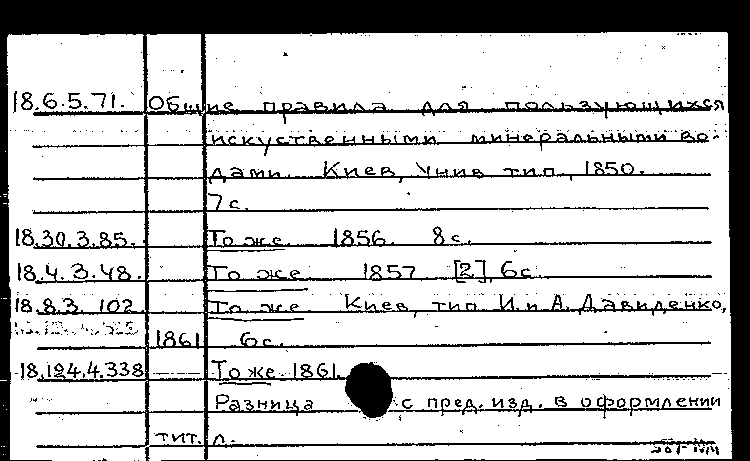 18.6.5.71. Общие правила для пользующихся
искуственными минеральными во-
дами. Киев, Унив. тип., 1850.
7с.
18.30.3.85. То же. 1856. 8с.
18.4.3.48. То же 1857 [2], 6с.
18.8.3.102. То же. Киев, тип. И. и А. Давиденко,
1861 6с.
18.124.4.338 То же. 1861.
Разница с пред. изд. в оформлении
тит. л.